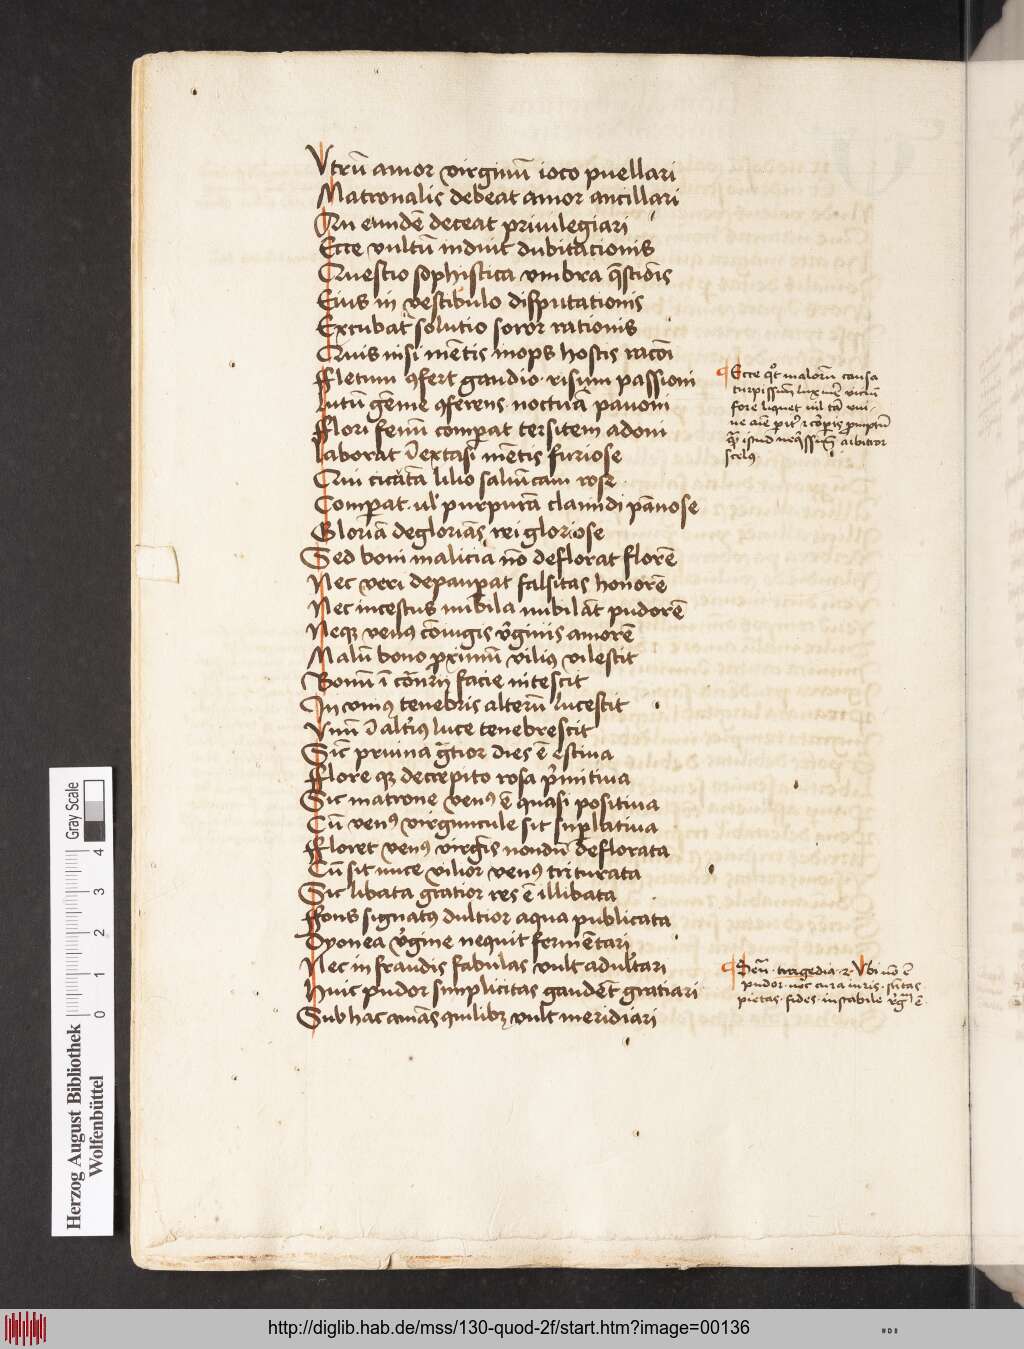 Vtrū amor virginū ioco puellari
Matronalis debeat amor ancillari
An eundē deceat priuilegiari
Ecce vultū induit dubitacionis
Questio sophistica vmbra q̄stiōis
Eius in vestibulo disputationis
Excubat solutio soror rationis
Quis nisi mētis inops hostis racōi
Fletum ꝯfert gaudio risum passioni
Lutū gēme ꝯferens noctuā pavoni
Flori fenū comꝑat tersitem adoni
Laborat ī extasi mētis furiose
Qui cicutā lilio saliūcam rose
Comꝑat ul' purpurā clamidi pānose
Gloriā deglorias rei gloriose
Sed boni maliciā nō deflorat florē
Nec veri depauꝑat falsitas honorē
Nec incestus nubila nubilāt pudorē
Neqꝫ venꝰ cōiugis v̓ginis amorē
Malū bono proximū viliꝰ vilescit
Bonū ī cōtrarii facie nitescit
In vniꝰ tenebris alterū lucescit
Vnū ī alt̓iꝰ luce tenebrescit
Sic pruina gr̄tior dies ē estiua
Flore qꝫ decrepito rosa p̓mitiua
Sic matrone venꝰ ē quasi positiua
Cū venꝰ virgūncule sit suꝑlatiua
Floret venꝰ virgīs nondū deflorata
Cū sit nuce vilior venꝰ triturata
Sic libata gratior res ē illibata
Fons signatꝰ dulcior aqua publicata
Dyonea v̓gine nequit fermētari
Nec in fraudis fabulas vult adult̓ari
Huic pudor simplicitas gaudēt gratiari
Sub hac amās quilibꝫ vult meridiari
Ecce qͦt malorū causa
turpissimū
fore liquet nil tā
scelꝰ
Senꝰ tragedia 2 Vbi nō ē
pudor nec cura iuris sc̄itas
pietas fides instabile
Herzog August Bibliothek
Wolfenbüttel
Gray Scale
0 1 2 3 4
http://diglib.hab.de/mss/130-quod-2f/start.htm?image=00136